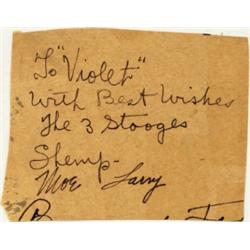 To "Violet"
With Best Wishes
The 3 Stooges
Shemp-
Moe Larry